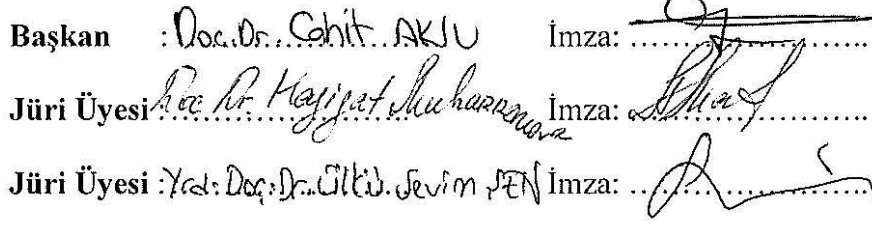 Başkan : Doc. Dr. Cahit AKSU İmza:
Jüri Üyesi Doc Dr. Hagigat Muharremova İmza:
Jüri Üyesi : Yrd. Doç. Dr. Ülkü Sevim ŞEN İmza: